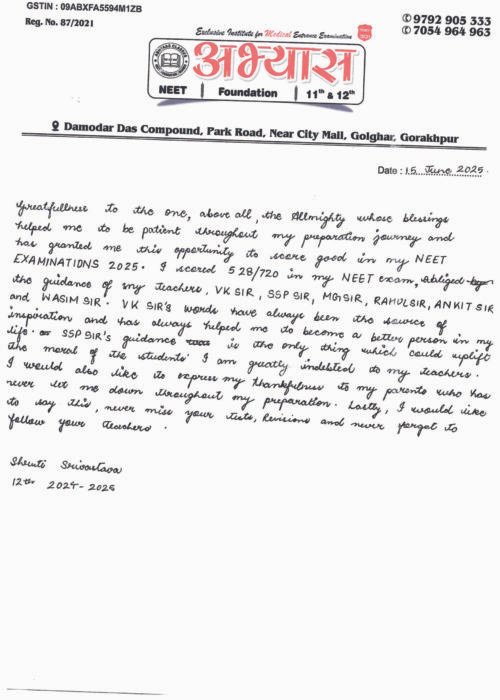 GSTIN : 09ABXFA5594M1ZB
Reg. No. 87/2021
Exclusive Institute for Medical Entrance Examination
✆ 9792 905 333
✆ 7054 964 963
अभ्यास
NEET | Foundation | 11th & 12th
Damodar Das Compound, Park Road, Near City Mall, Golghar, Gorakhpur
Date : 15 June 2025.
Greatfullness to the one, above all, the Allmighty whose blessings
helped me to be patient throughout my preparation journey and
has granted me this opportunity to score good in my NEET
EXAMINATIONS 2025. I scored 528/720 in my NEET exam,
the guidance of my teachers, VK SIR, SSP SIR, MG SIR, RAHUL SIR, ANKIT SIR
and WASIM SIR. VK SIR's words have always been the source of
inspiration and has always helped me to become a better person in my
life. SSP SIR's guidance is the only thing which could uplift
the moral of the students I am greatly indebted to my teachers.
I would also like to express my thankfulness to my parents who has
never let me down throughout my preparation. Lastly, I would like
to say this, never miss your tests, Revisions and never forget to
follow your teachers.
Shruti Srivastava
12th 2024-2025